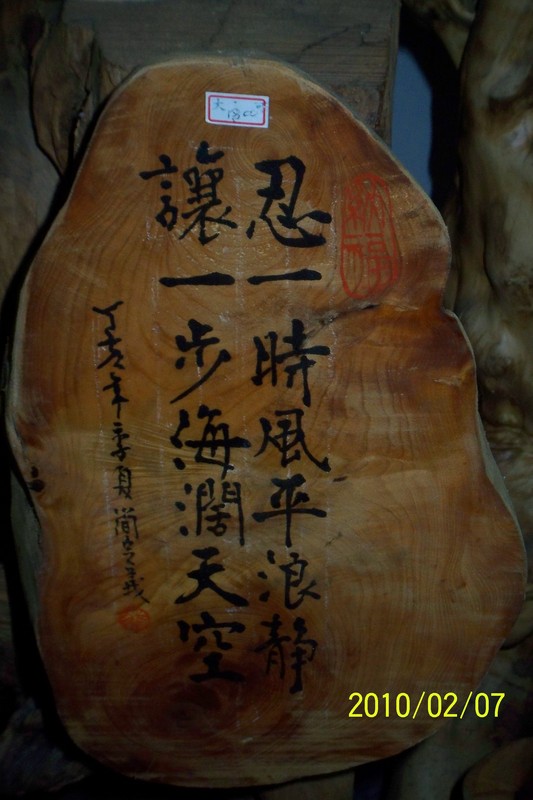 忍一時風平浪静
讓一步海濶天空
丁亥年季夏
2010/02/07